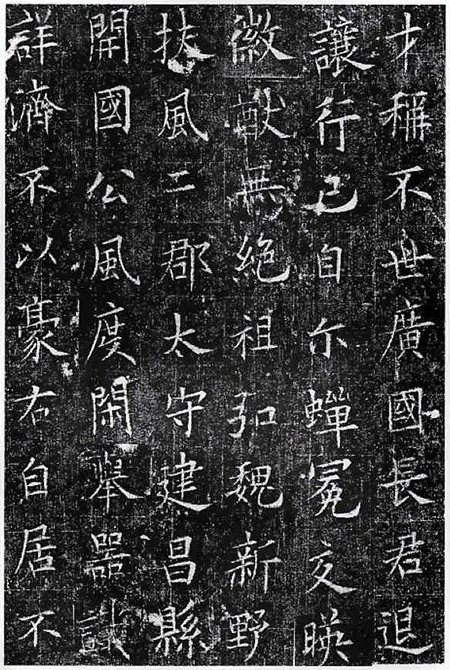 才稱不世廣國長君退
讓行己自尒蟬冕交暎
徽猷無絶祖弘魏新野
扶風二郡太守建昌縣
開國公風度閑舉器識
詳濟不以豪右自居不